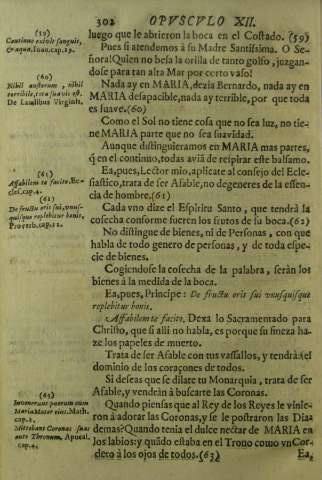 302 OPVSCVLO XII.
(59)
Continuo exivit sanguis,
& aqua, Ioan. cap. 19.
(60)
Nihil austerum, nihil
terribile, tota suavis est.
De Laudibus Virginis.
(61)
Affabilem te facito, Ec-
cles. cap. 4.
(62)
De fructu oris sui, vnus-
quisque replebitur bonis,
Proverb. cap. 12.
(63)
Invenerunt puerum cum
Maria Mater eius. Math.
cap. 2.
Mittebant Coronas suas
ante Thronum, Apocal.
cap. 4.
luego que le abrieron la boca en el Costado. (59)
Pues si atendemos à su Madre Santissima. O Se-
ñora! Quien no besa la orilla de tanto golfo, juzgan-
dose para tan alta Mar por corto vaso!
Nada ay en MARIA, dezia Bernardo, nada ay en
MARIA desapacible, nada ay terrible, por que toda
es suave. (60)
Como el Sol no tiene cosa que no sea luz, no tie-
ne MARIA parte que no sea suavidad.
Aunque distinguieramos en MARIA mas partes,
q̃ en el continuo, todas aviã de respirar este balsamo.
Ea, pues, Lector mio, aplicate al consejo del Ecle-
siastico, trata de ser Afable, no degeneres de la essen-
cia de hombre. (61)
Cada vno dize el Espiritu Santo, que tendrà la
cosecha conforme fueren los frutos de su boca. (62)
No distingue de bienes, ni de Personas, con que
habla de todo genero de personas, y de toda espe-
cie de bienes.
Cogiendose la cosecha de la palabra, seràn los
bienes à la medida de la boca.
Ea, pues, Principe: De fructu oris sui vnusquisque
replebitur bonis.
Affabilem te facito, Dexa lo Sacramentado para
Christo, que si alli no habla, es porque su fineza ha-
ze los papeles de muerto.
Trata de ser Afable con tus vassallos, y tendràs el
dominio de los coraçones de todos.
Si deseas que se dilate tu Monarquia, trata de ser
Afable, y vendràn à buscarte las Coronas.
Quando piensas que al Rey de los Reyes le vinie-
ron à adorar las Coronas, y se le postraron las Dia
demas? Quando tenia el dulce nectar de MARIA en
los labios: y quãdo estaba en el Trono como vn Cor-
dero à los ojos de todos. (63) Ea,